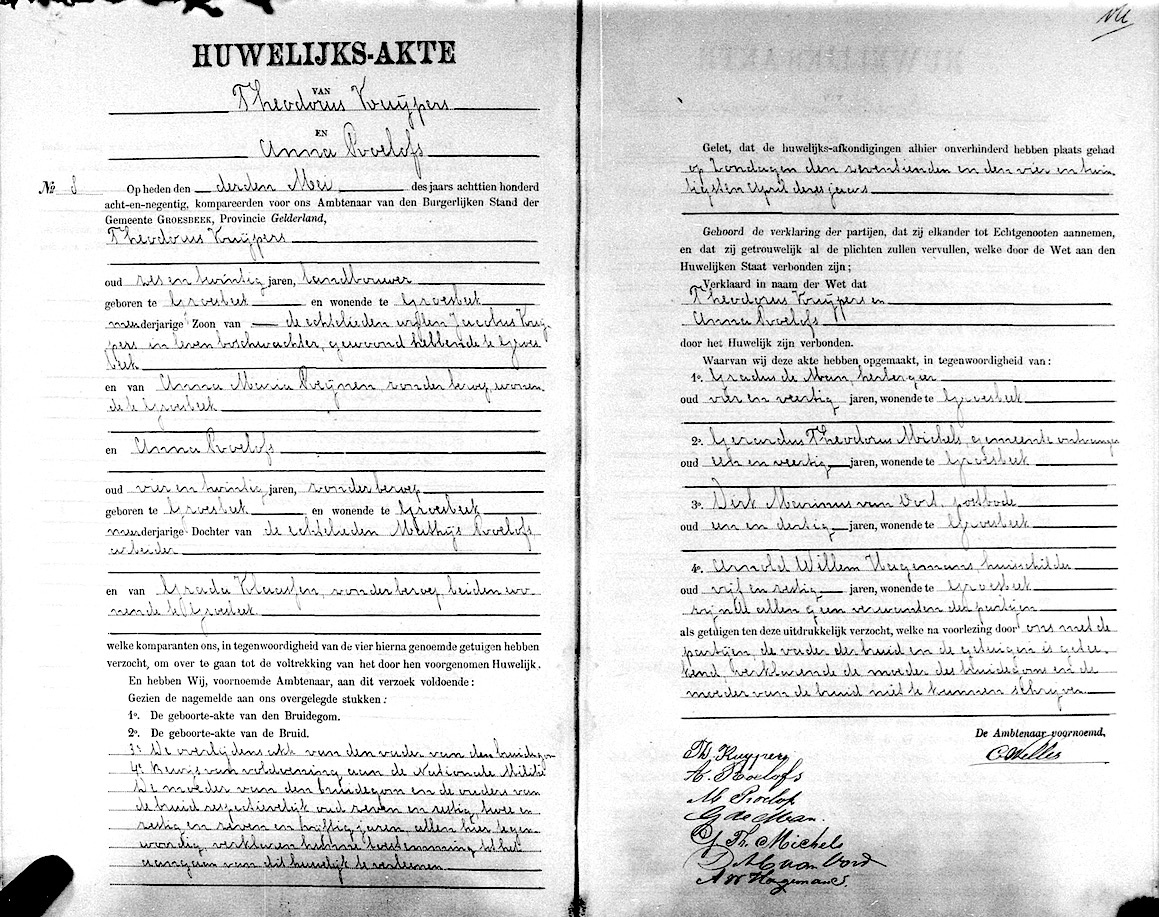 HUWELIJKS-AKTE
VAN
Theodorus Kuijpers
EN
Anna Roelofs
No 8 Op heden den derden Mei des jaars achttien honderd
acht-en-negentig, kompareerden voor ons Ambtenaar van den Burgerlijken Stand der
Gemeente GROESBEEK, Provincie Gelderland,
Theodorus Kuijpers
oud zes en twintig jaren, landbouwer
geboren te Groesbeek en wonende te Groesbeek
meerderjarige Zoon van de echtelieden wijlen Jacobus Kuij-
pers in leven boschwachter, gewoond hebbende te Groes
beek
en van Anna Maria Reijnen, zonder beroep, wonen-
de te Groesbeek
en Anna Roelofs
oud vier en twintig jaren, zonder beroep
geboren te Groesbeek en wonende te Groesbeek
meerderjarige Dochter van de echtelieden Mathijs Roelofs
arbeider
en van Grada Klaassen, zonder beroep, beiden wo-
nende te Groesbeek
welke komparanten ons, in tegenwoordigheid van de vier hierna genoemde getuigen hebben
verzocht, om over te gaan tot de voltrekking van het door hen voorgenomen Huwelijk.
En hebben Wij, voornoemde Ambtenaar, aan dit verzoek voldoende:
Gezien de nagemelde aan ons overgelegde stukken:
1o. De geboorte-akte van den Bruidegom.
2o. De geboorte-akte van de Bruid.
3o De overlijdens akte van den vader van den bruidegom
4o Bewijs van voldoening aan de Nationale Militie
De moeder van den bruidegom en de ouders van
de bruid respectievelijk oud zeven en zestig, twee en
zestig en zeven en vijftig jaren, allen hier tegen-
woordig, verklaren hunne toestemming tot het
aangaan van dit huwelijk te verleenen
Gelet, dat de huwelijks-afkondigingen alhier onverhinderd hebben plaats gehad
op Zondagen den zeventienden en den vier en twin
tigsten April dezes jaars
Gehoord de verklaring der partijen, dat zij elkander tot Echtgenooten aannemen,
en dat zij getrouwelijk al de plichten zullen vervullen, welke door de Wet aan den
Huwelijken Staat verbonden zijn;
Verklaard in naam der Wet dat
Theodorus Kuijpers en
Anna Roelofs
door het Huwelijk zijn verbonden.
Waarvan wij deze akte hebben opgemaakt, in tegenwoordigheid van:
1o. Gradus de Man, herbergier
oud vier en veertig jaren, wonende te Groesbeek
2o. Gerardus Theodorus Michels, gemeente ontvanger
oud een en veertig jaren, wonende te Groesbeek
3o. Dirk Marinus van Oort, postbode
oud een en dertig jaren, wonende te Groesbeek
4o. Arnold Willem Hagemans, huisschilder
oud vijf en zestig jaren, wonende te Groesbeek
zijnde allen geen verwanten der partijen
als getuigen ten deze uitdrukkelijk verzocht, welke na voorlezing door ons met de
partijen, de vader der bruid en de getuigen is getee-
kend, verklarende de moeder des bruidegoms en de
moeder van de bruid niet te kunnen schrijven
De Ambtenaar voornoemd,
Th. Kuypers
A. Roelofs
M Roelofs
G de Man.
G. Th. Michels
A W Hagemans.